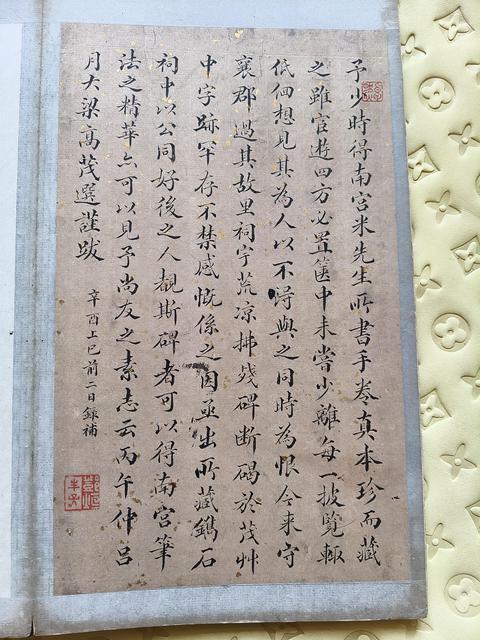 予少時得南宮米先生所書手卷真本珍而藏
之雖官遊四方必置篋中未嘗少離每一披覽輒
低佪想見其為人以不得與之同時為恨今来守
襄郡過其故里祠宇荒凉拂残碑斷碣於茂艸
中字跡罕存不禁感慨係之因亟出所藏鐫石
祠中以公同好後之人覩斯碑者可以得南宮筆
法之精華亦可以見予尚友之素志云丙午仲呂
月大梁高茂選謹跋
辛酉上巳前二日録補